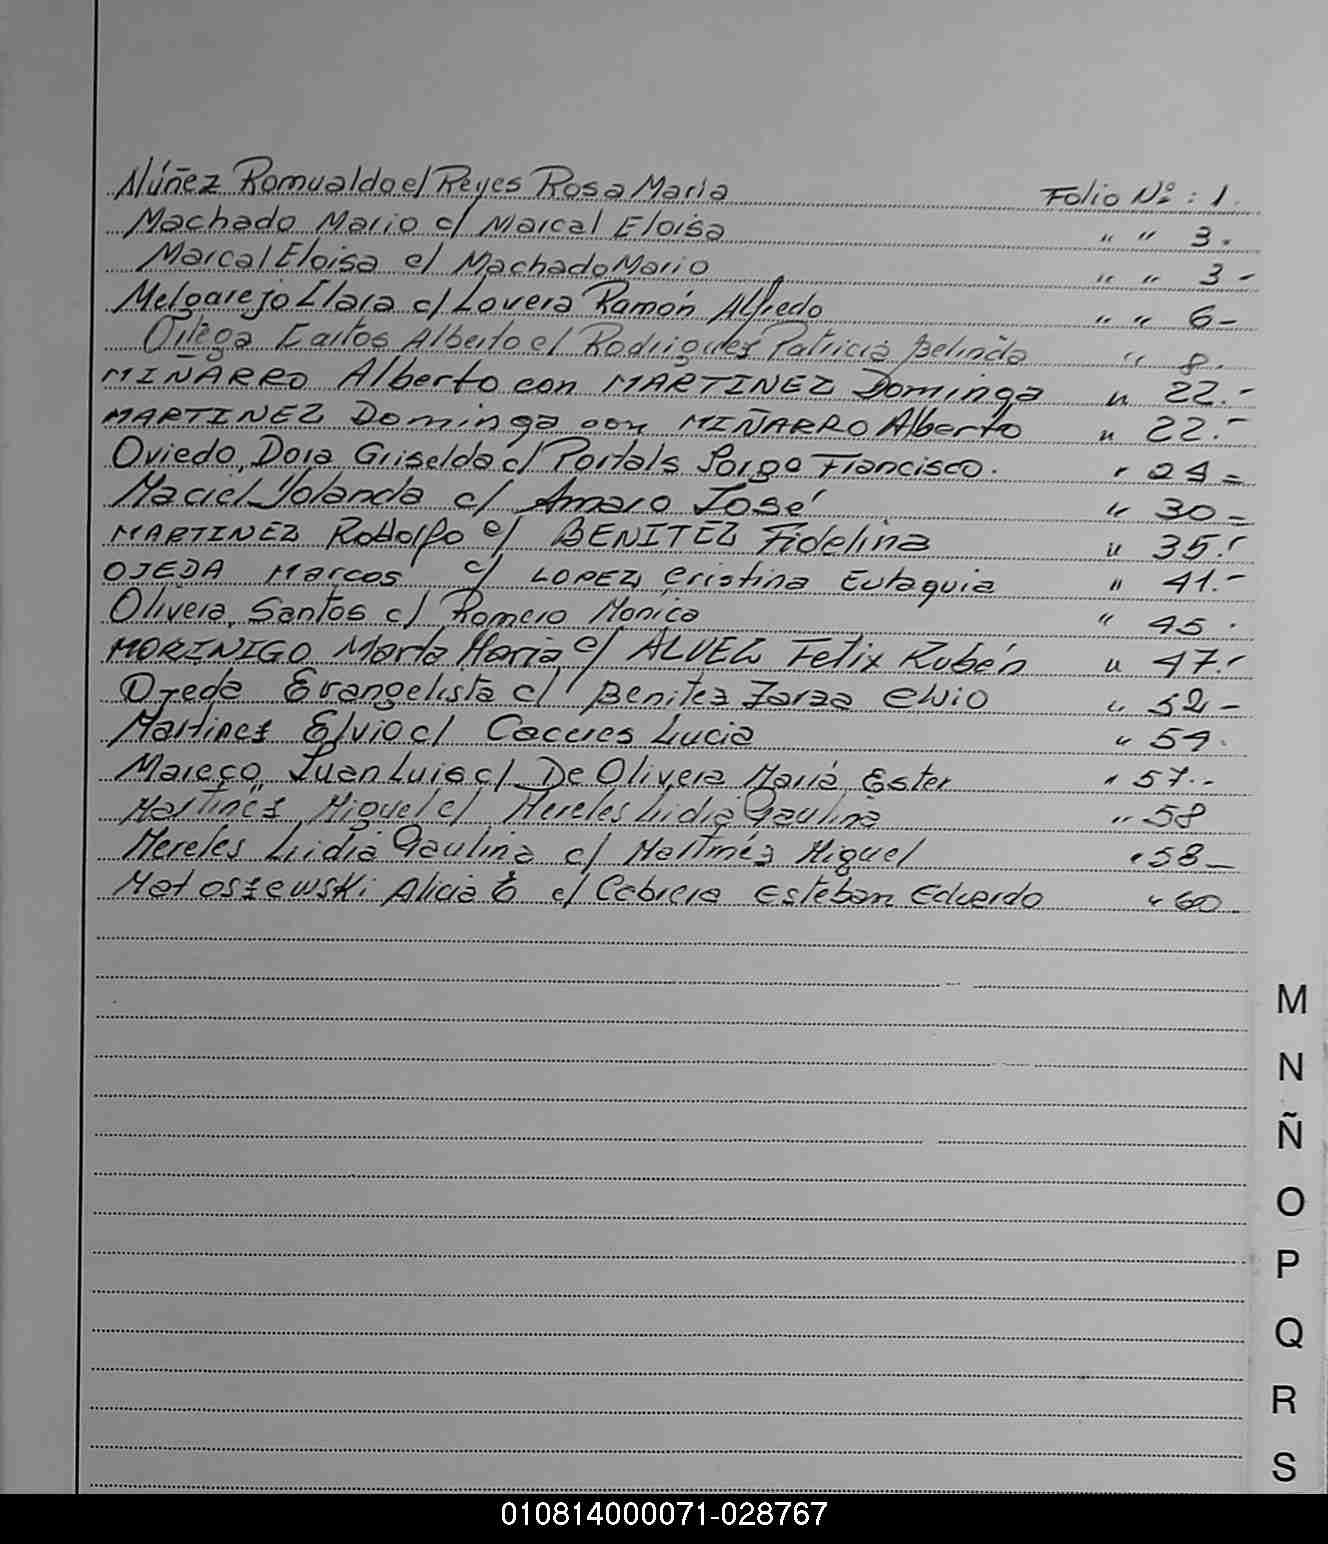 Núñez Romualdo c/ Reyes Rosa María Folio Nº: 1.
Machado Mario c/ Marcal Eloisa " " 3.
Marcal Eloisa c/ Machado Mario " " 3-
Melgarejo Clara c/ Lovera Ramón Alfredo " " 6-
Ortega Carlos Alberto c/ Rodriguez Patricia Belinda " 8.
MIÑARRO Alberto con MARTINEZ Dominga " 22.-
MARTINEZ Dominga con MIÑARRO Alberto " 22.-
Oviedo, Dora Griselda c/ Portals Jorge Francisco. " 24=
Maciel Yolanda c/ Amaro José " 30=
MARTINEZ Rodolfo c/ BENITEZ Fidelina " 35.-
OJEDA Marcos c/ LOPEZ Cristina Eutaquia " 41.-
Olivera, Santos c/ Romero Monica " 45.
MORINIGO Marta Maria c/ ALVEZ Felix Rubén " 47.-
Ojeda Evangelista c/ Benitez Zaraa Elvio " 52-
Martinez Elvio c/ Caceres Lucia " 54.
Mareco, Juan Luis c/ De Olivera María Ester " 57..
Martínez Miguel c/ Mereles Lidia Paulina " 58
Mereles Lidia Paulina c/ Martínez Miguel " 58-
Matoszewski Alicia E c/ Cabrera Esteban Eduardo " 60
M
N
Ñ
O
P
Q
R
S
010814000071-028767